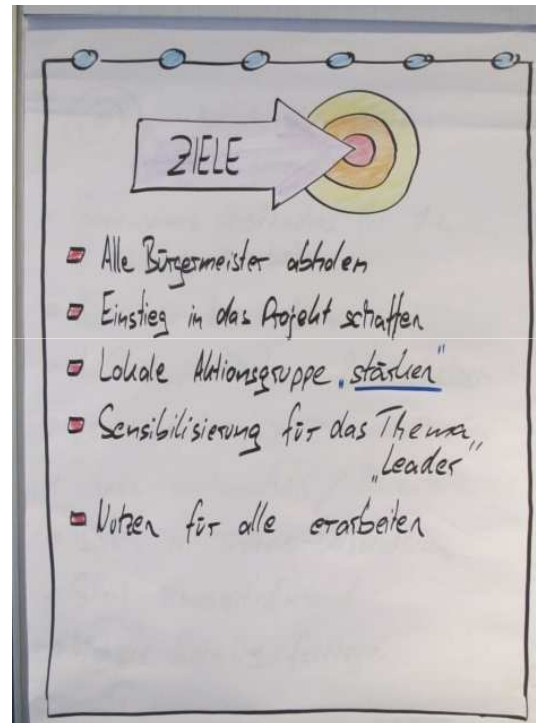 ZIELE
Alle Bürgermeister abholen
Einstieg in das Projekt schaffen
Lokale Aktionsgruppe „stärken"
Sensibilisierung für das Thema
„Leader"
Nutzen für alle erarbeiten